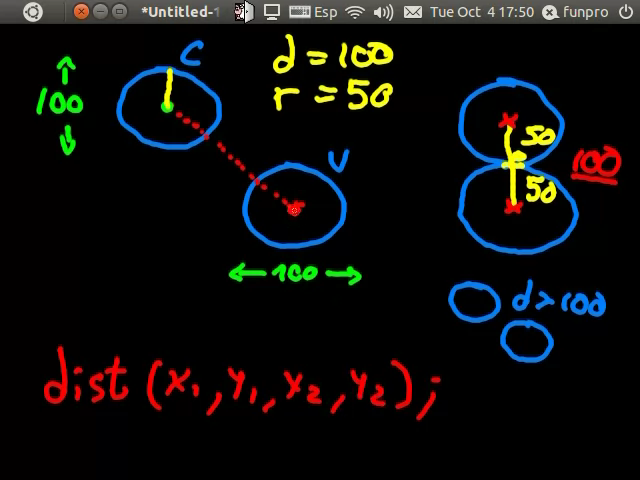 *Untitled-1 Esp Tue Oct 4 17:50 funpro
C
d = 100
r = 50
100
50
100
50
V
100
d > 100
dist (x₁, y₁, x₂, y₂);